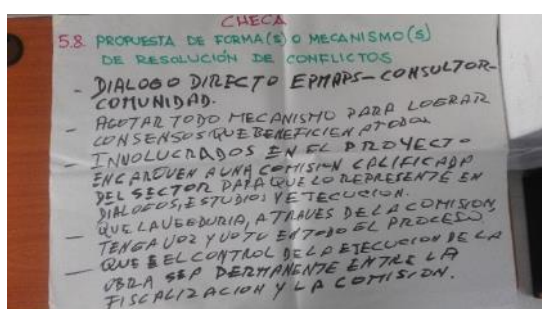 CHECA
5.8. PROPUESTA DE FORMA(S) O MECANISMO(S)
DE RESOLUCIÓN DE CONFLICTOS
- DIALOGO DIRECTO EPMAPS-CONSULTOR-
COMUNIDAD.
- AGOTAR TODO MECANISMO PARA LOGRAR
CONSENSOS QUE BENEFICIEN A TODOS.
- INVOLUCRADOS EN EL PROYECTO
ENCARGUEN A UNA COMISION CALIFICADA
DEL SECTOR PARA QUE LO REPRESENTE EN
DIALOGOS, ESTUDIOS Y EJECUCION.
- QUE LA VEEDURIA, A TRAVES DE LA COMISION,
TENGA VOZ Y VOTO EN TODO EL PROCESO,
- QUE EL CONTROL DE LA EJECUCION DE LA
OBRA SEA PERMANENTE ENTRE LA
FISCALIZACION Y LA COMISION.